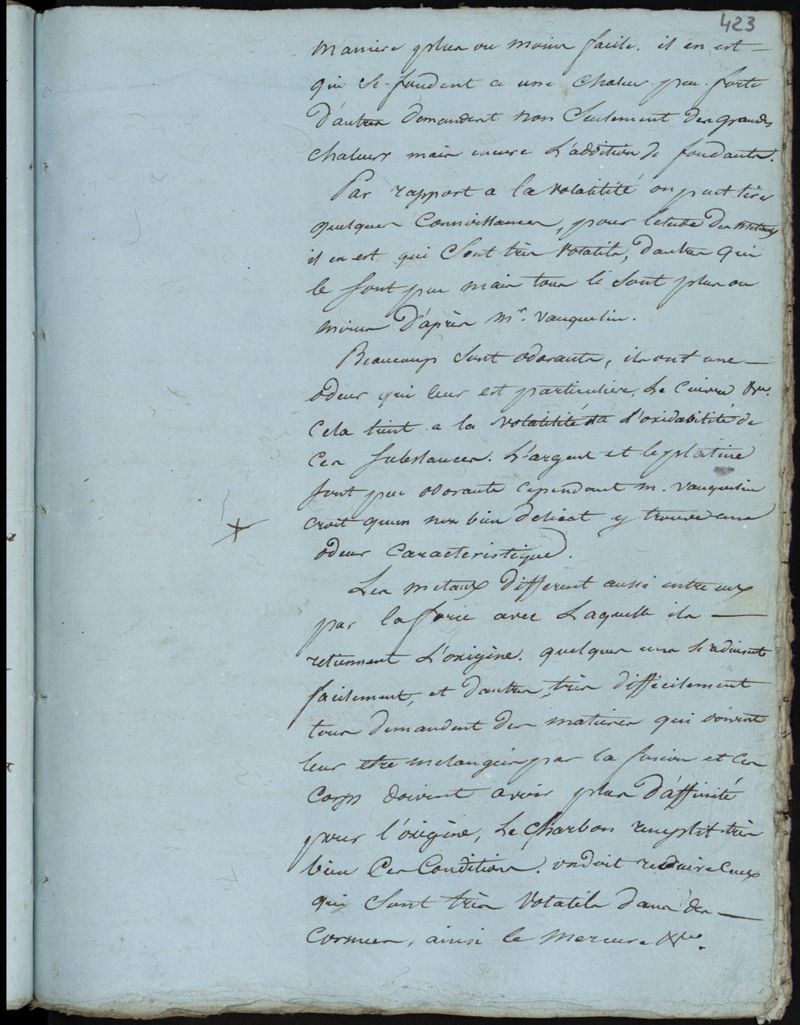 423
maniere plus ou moins facile. il en est
qui se fondent a une chaleur peu forte
d'autres demandent non seulement des grandes
chaleurs mais encore l'addition de fondants.
Par rapport a la volatilité on peut tirer
quelques connoissances, pour letude des metaux
il en est qui sont très volatils, d'autres qui
le sont peu mais tous le sont plus ou
moins d'après mr. vauquelin.
Beaucoup sont odorants, ils ont une
odeur qui leur est particuliere, Le cuivre &c.
Cela tient a la volatilité et a L'oxidabilité de
Ces substances. L'argent et le platine
sont peu odorants cependant m. vauquelin
croit qu'un nez bien delicat y trouve une
odeur caracteristique.
Les metaux different aussi entre eux
par la force avec Laquelle ils
retiennent L'oxigène. quelques uns se reduisent
facilement, et d'autres, très difficilement
tous demandent des matieres qui doivent
leur etre melangées par la fusion et Ces
corps doivent avoir plus d'affinité
pour l'oxigène, Le charbon remplit très
bien Ces Conditions. on doit reduire Ceux
qui sont très volatils dans des
Cornues, ainsi le mercure &c.